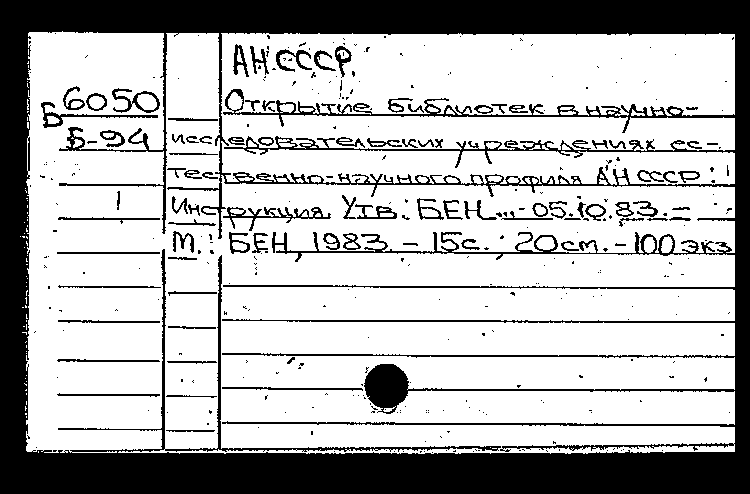 АН СССР.
Б 6050 Открытие библиотек в научно-
Б-94 исследовательских учреждениях ес-
тественно-научного профиля АН СССР:
1 Инструкция. Утв. БЕН... 05.10.83. –
М.: БЕН, 1983. – 15с.; 20см. – 100 экз